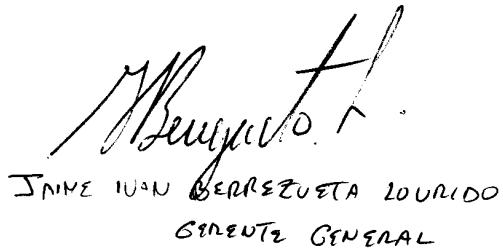 JAIME IVAN BERREZUETA LOURIDO
GERENTE GENERAL